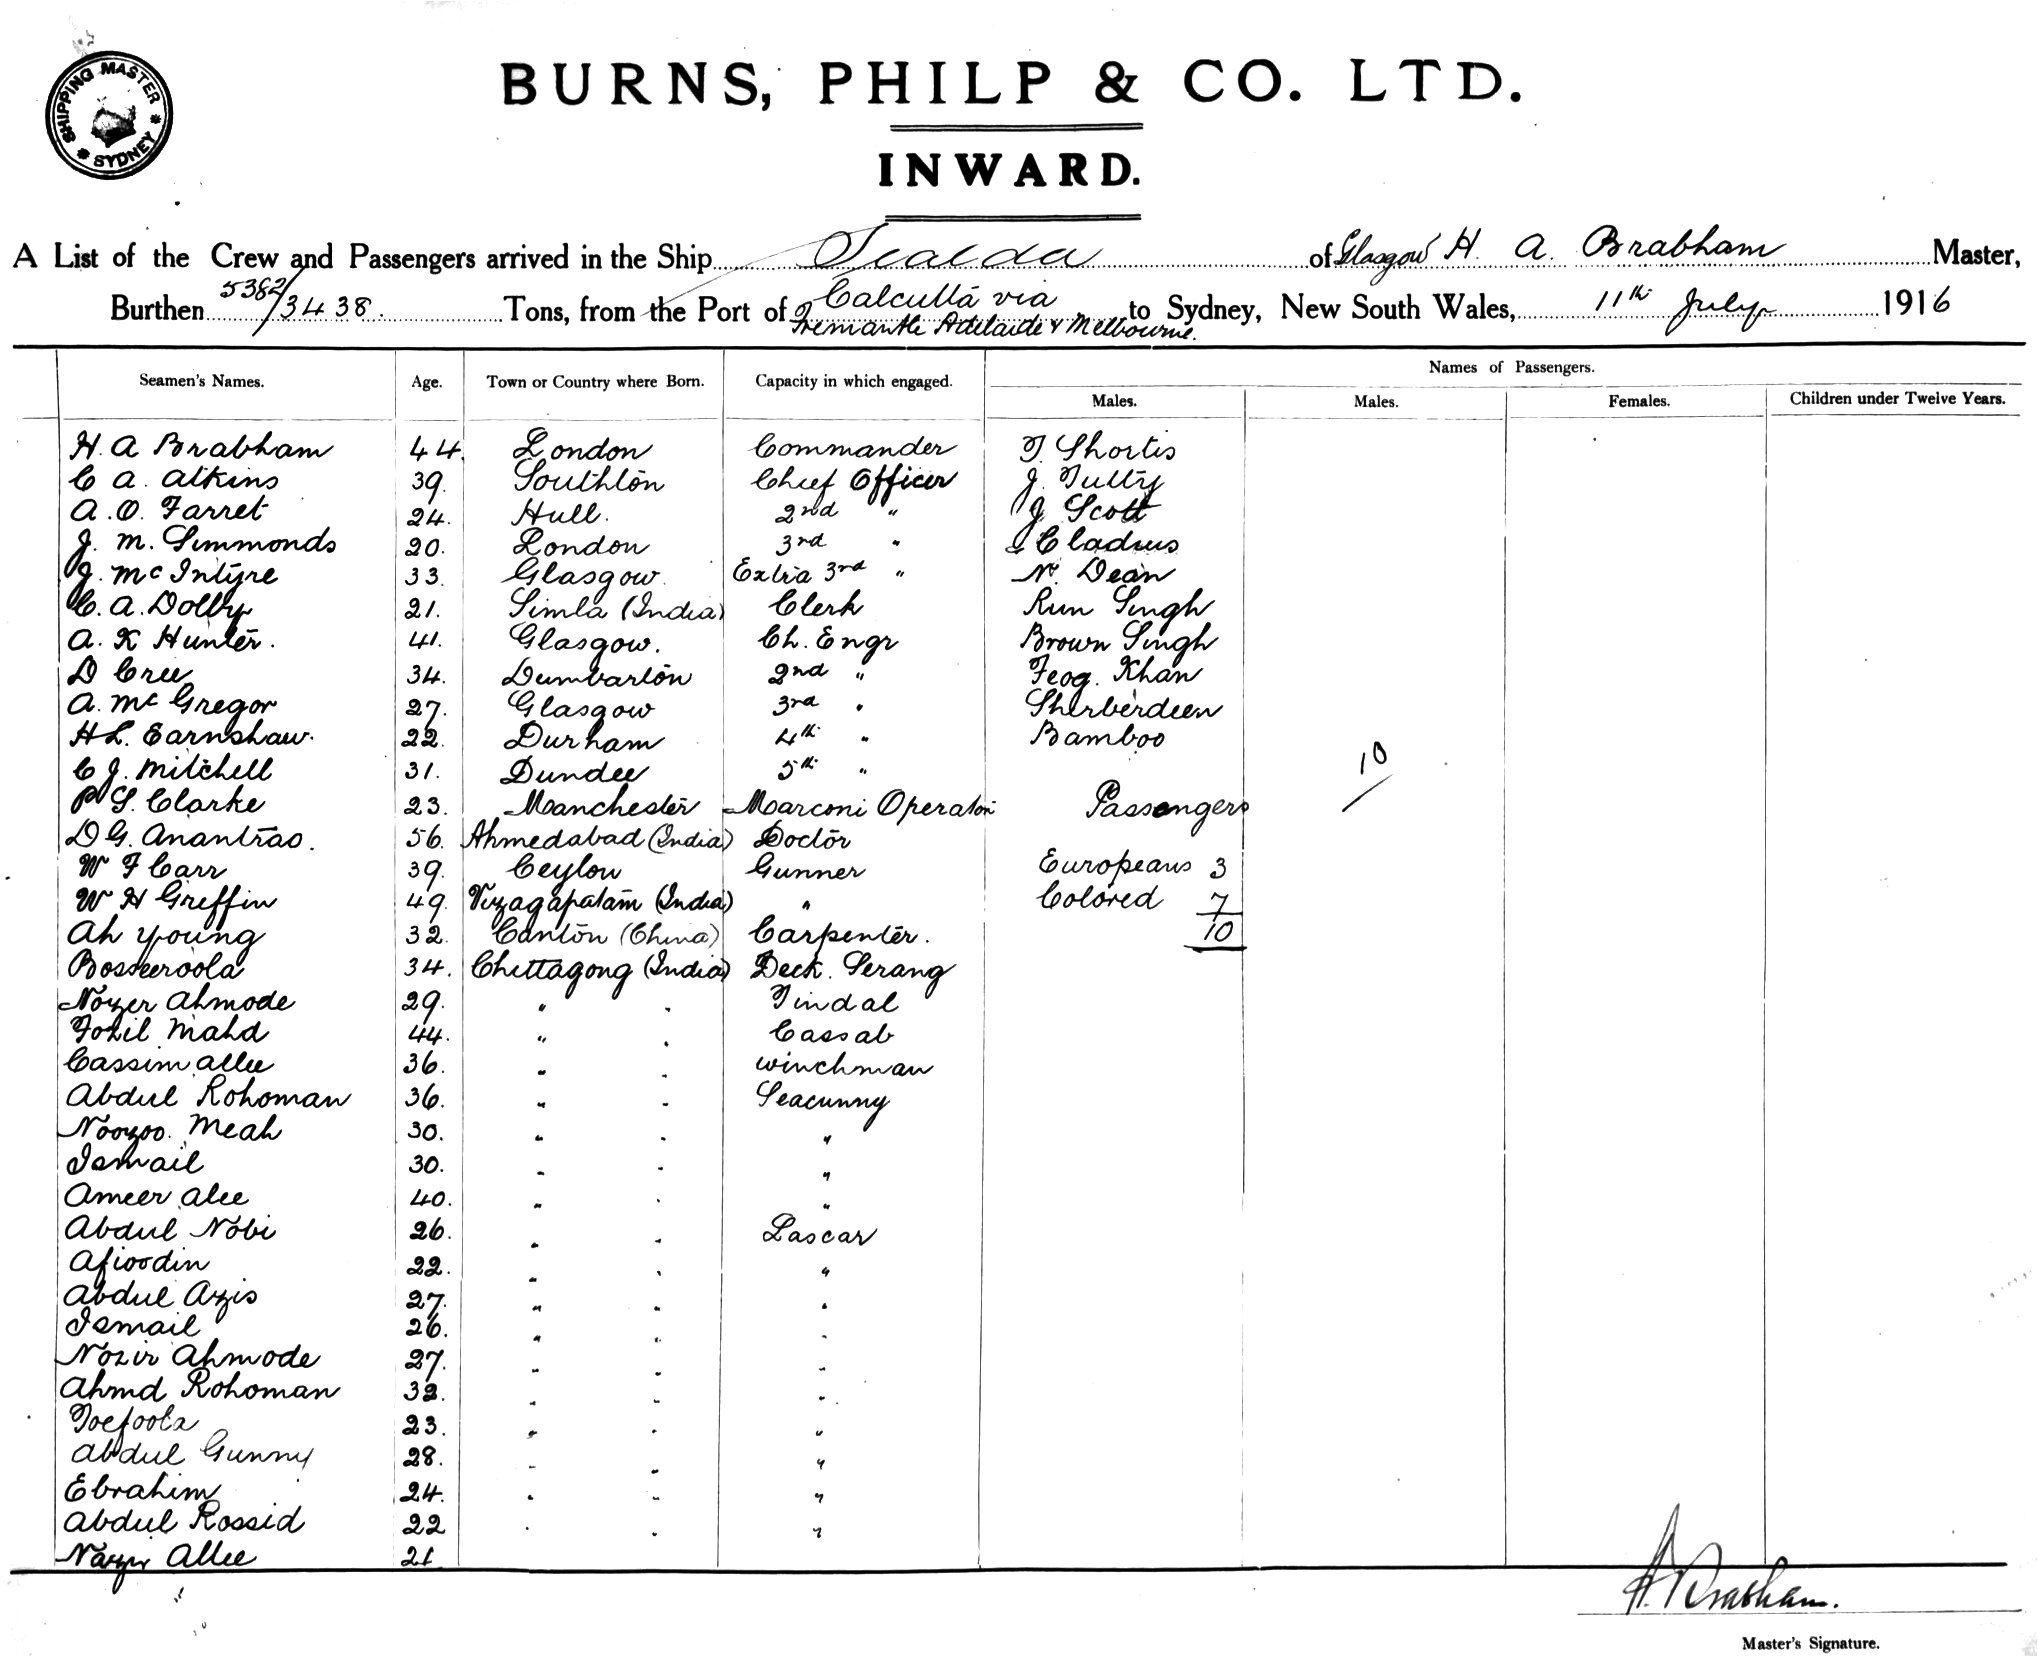 SHIPPING MASTER
* SYDNEY *
BURNS, PHILP & CO. LTD.
INWARD.
A List of the Crew and Passengers arrived in the Ship Itealda of Glasgow H. A. Brabham Master,
Burthen 5382/3438. Tons, from the Port of Calcutta via Fremantle Adelaide & Melbourne. to Sydney, New South Wales, 11th July 1916
Names of Passengers.
Seamen's Names. Age. Town or Country where Born. Capacity in which engaged. Males. Males. Females. Children under Twelve Years.
H. A Brabham 44. London Commander T Shortis
C A. Atkins 39. Southton Chief Officer J. Tutty
A. O. Farret 24. Hull. 2nd " J. Scott
J. M. Simmonds 20. London 3rd " Cladius
J. McIntyre 33. Glasgow. Extra 3rd " N. Dean
C. A. Dolby 21. Simla (India) Clerk Run Singh
A. K Hunter. 41. Glasgow. Ch. Engr Brown Singh
D Cree 34. Dumbarton 2nd " Feog. Khan
A. McGregor 27. Glasgow 3rd " Sherberdeen
H L. Earnshaw. 22. Durham 4th " Bamboo
C J. Mitchell 31. Dundee 5th " 10
P S. Clarke 23. Manchester Marconi Operator Passengers
D G. Anantrao. 56. Ahmedabad (India) Doctor
W F Carr 39. Ceylon Gunner Europeans 3
W H Griffin 49. Vizagapatam (India) " Colored 7
Ah Young 32. Canton (China) Carpenter. 10
Bosseeroola 34. Chittagong (India) Deck. Serang
Noyer Ahmode 29. " " Tindal
Fozil Mahd 44. " " Cassab
Cassim Allee 36. " " Winchman
Abdul Rohoman 36. " " Seacunny
Nooyoo. Meah 30. " " "
Ismail 30. " " "
Ameer Alee 40. " " "
Abdul Nobi 26. " " Lascar
Afioodin 22. " " "
Abdul Azis 27. " " "
Ismail 26. " " "
Nozir Ahmode 27. " " "
Ahmd Rohoman 32. " " "
Toefoola 23. " " "
Abdul Gunny 28. " " "
Ebrahim 24. " " "
Abdul Rossid 22 " " "
Allee 21
H. A. Brabham.
Master's Signature.